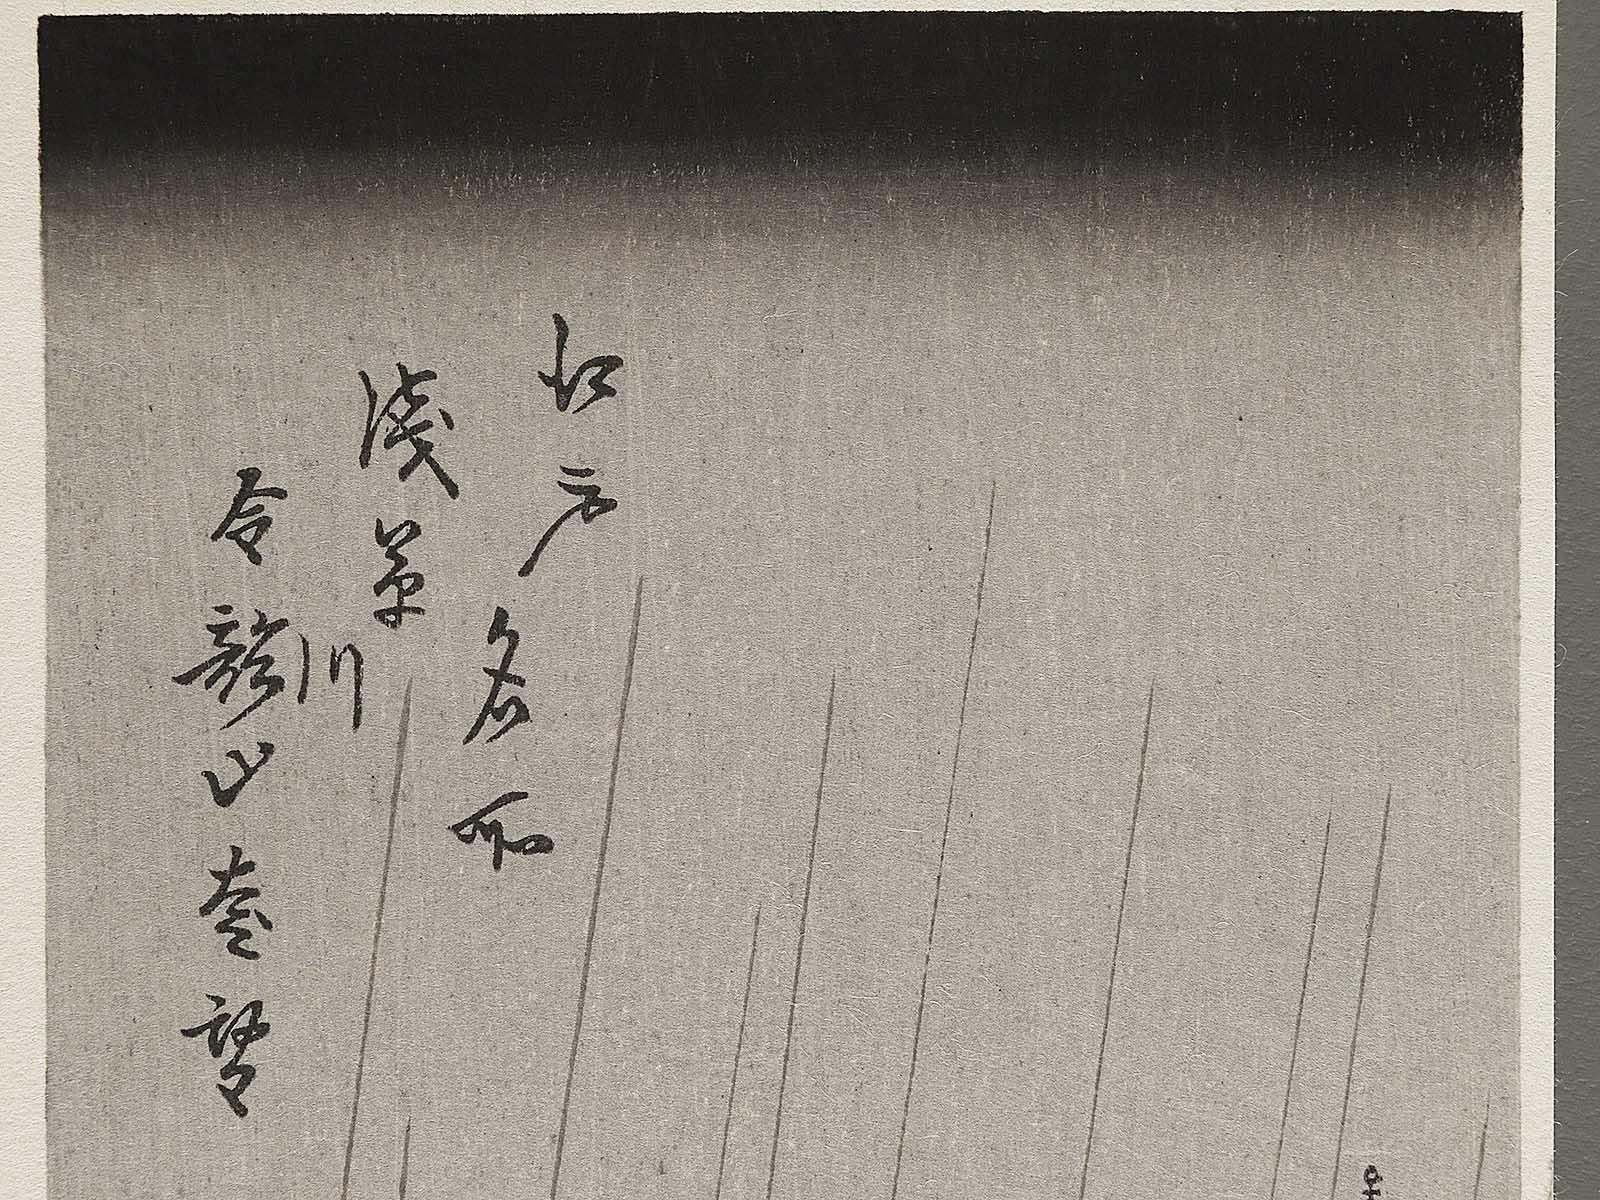 江戸名所
淺草川
金龍山遠望